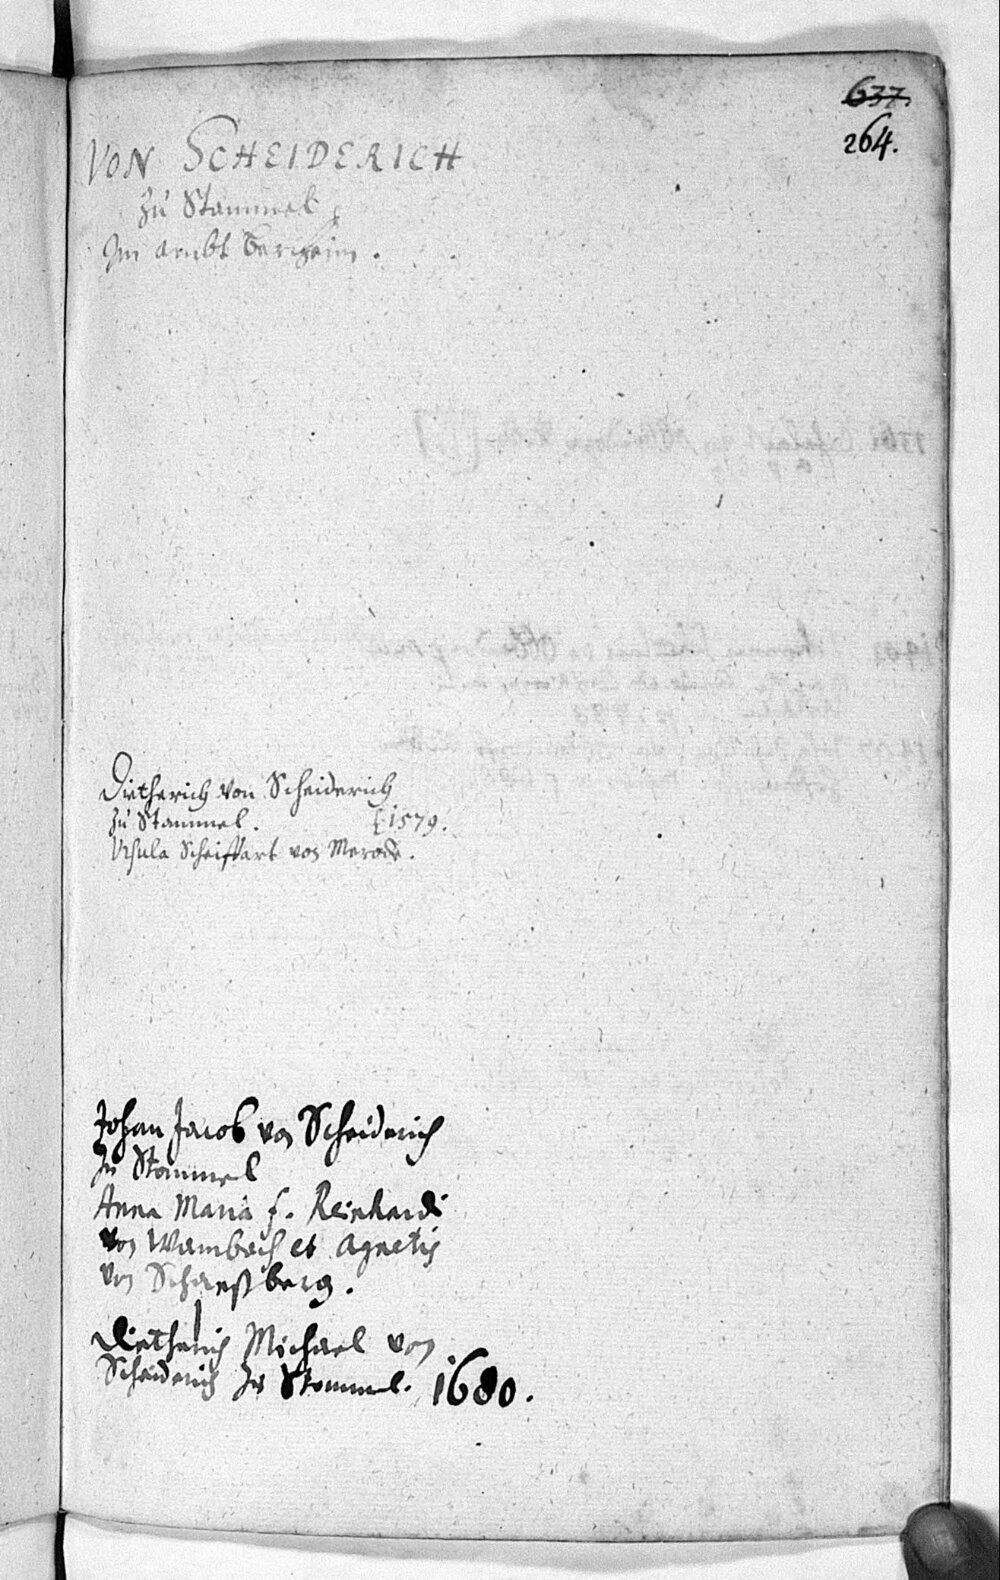 637.
264.
VON SCHEIDERICH
zu Stammel
Im ambt Bergheim.
Dietherich von Scheiderich
zu Stammel. 1579.
Ursula Scheiffart von Merode.
Johan Jacob von Scheiderich
zu Stommel
Anna Maria f. Reinhardi
von Wambach et Agnetis
von Schaesberg.
Dietherich Michael von
Scheiderich zu Stommel. 1680.